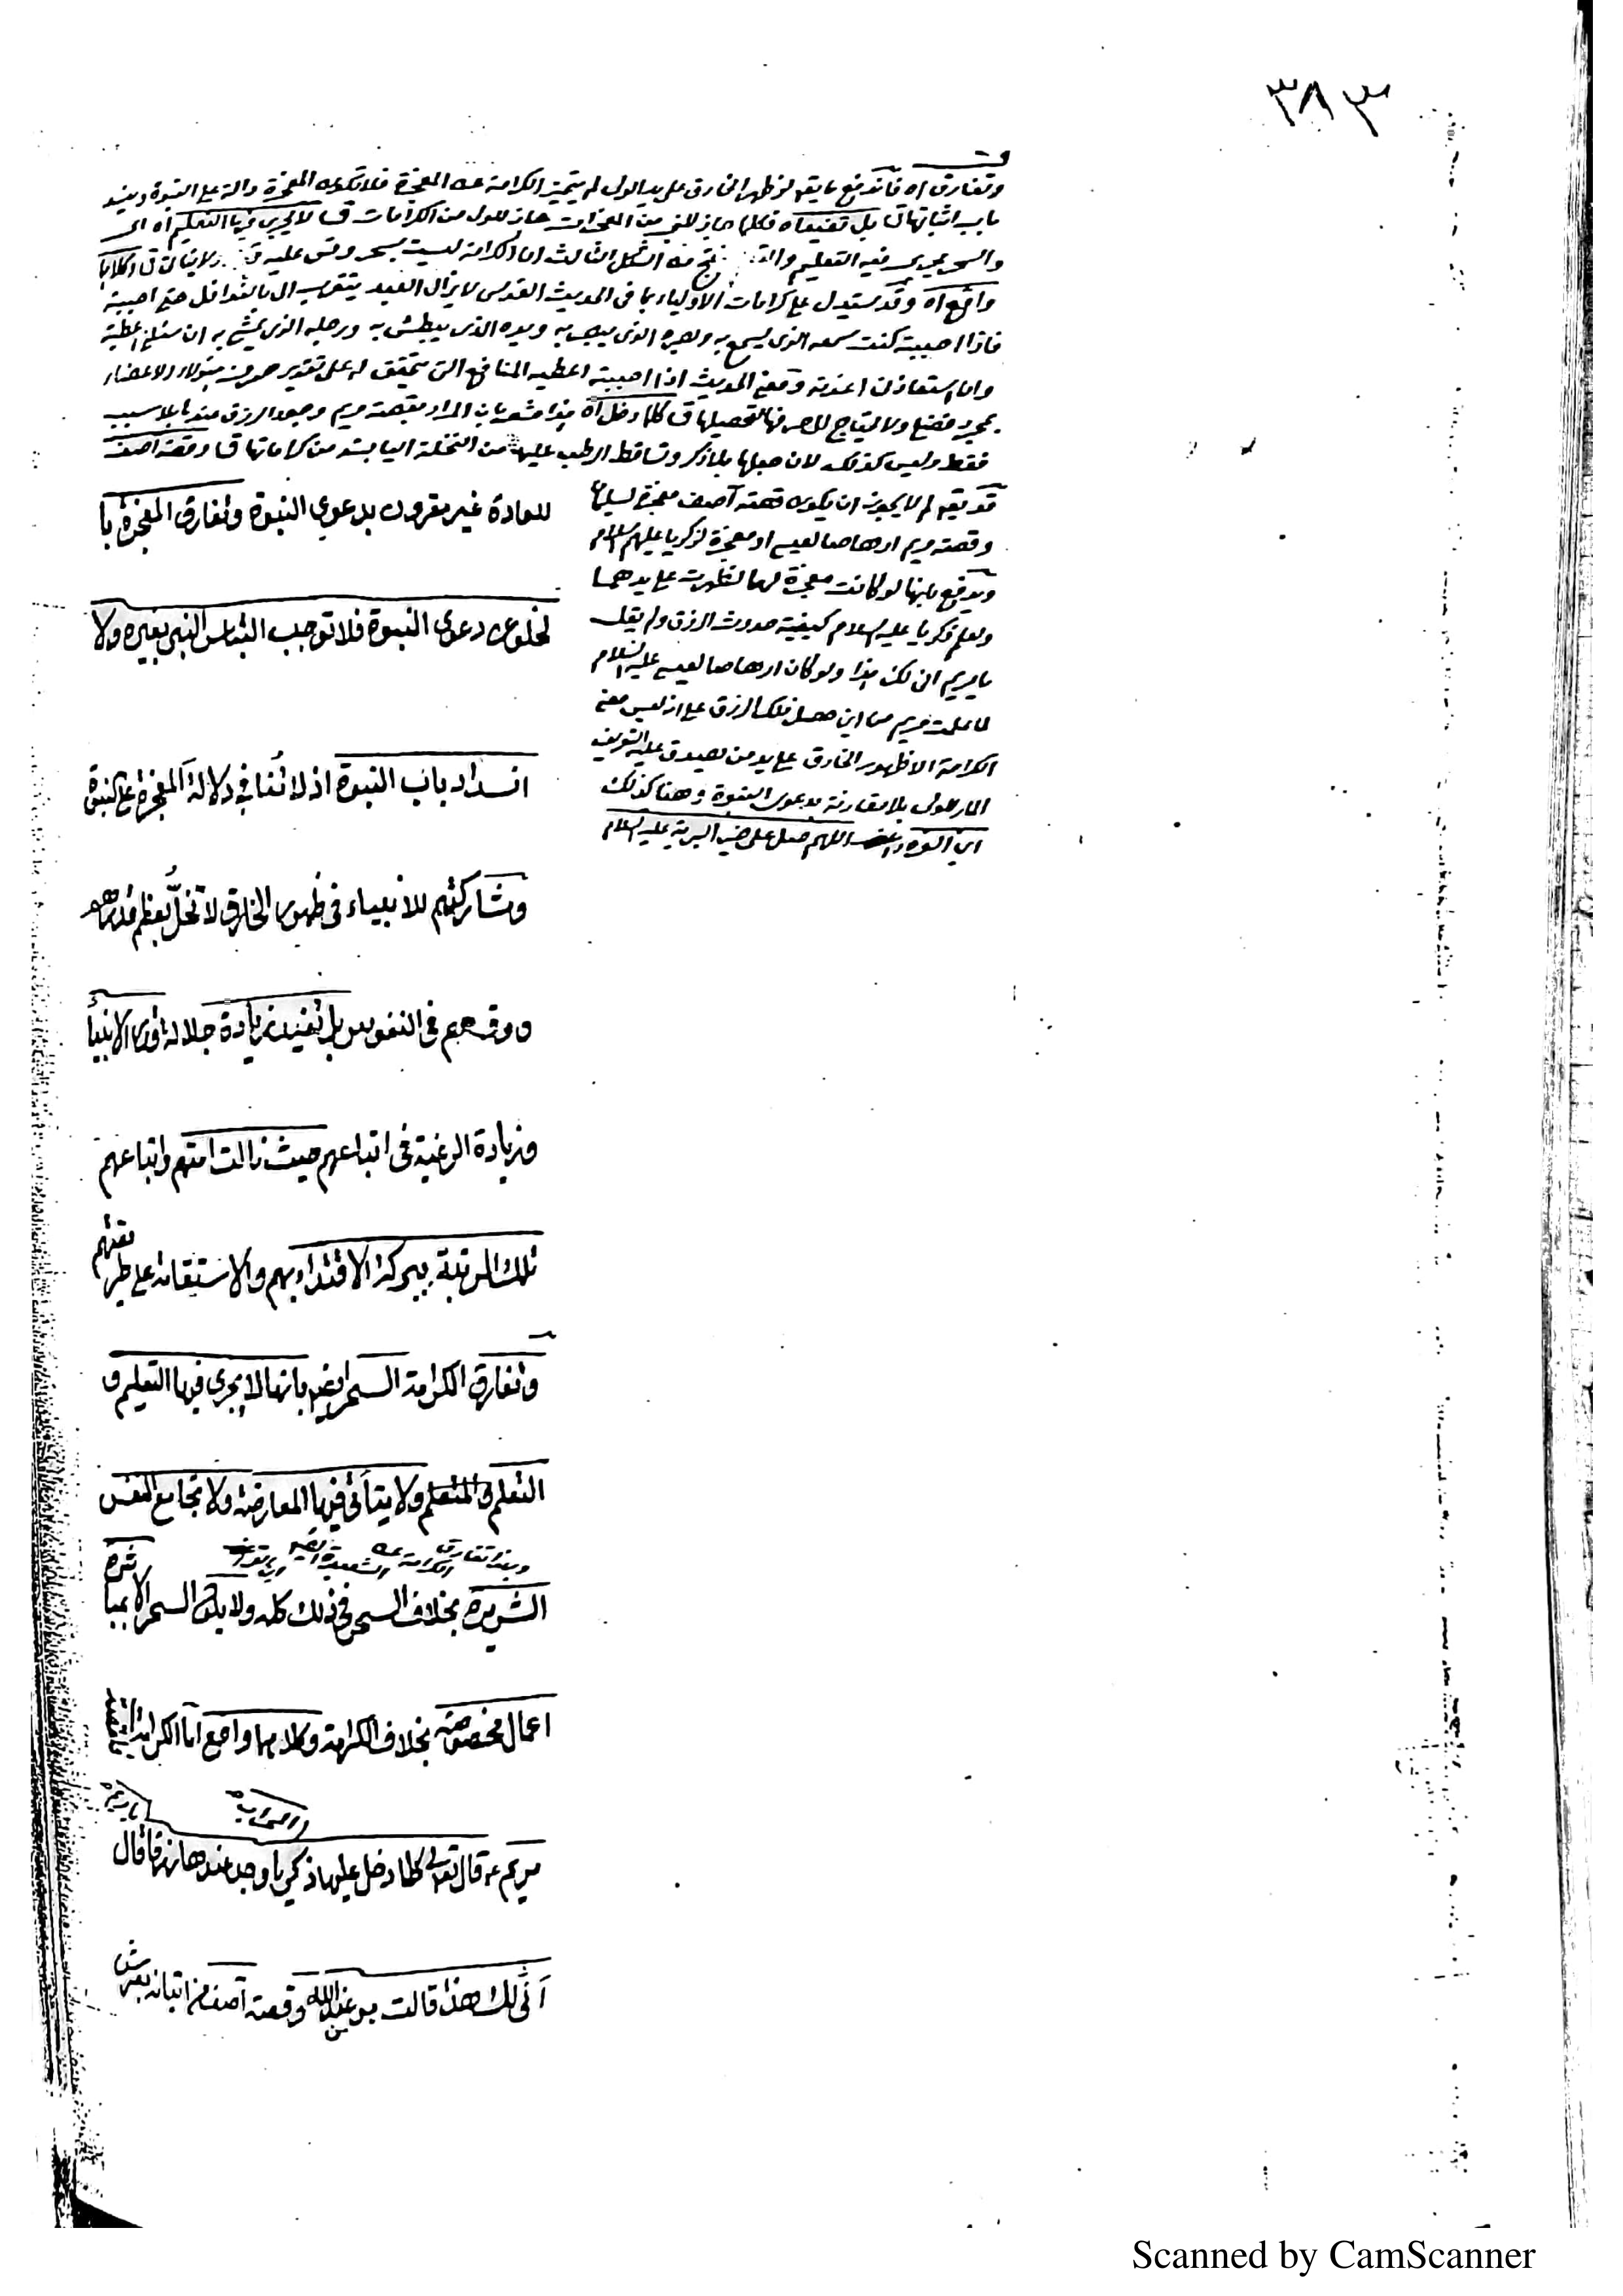 ٣٨٣
وتفارق اه فاندفع ما يقم لو ظهر الخارق على يد الولى لم يتميز الكرامة عن المعجزة فلا تكون المعجزة دالة على النبوة وينسد
باب اثباتها قا بل تفيد اه فكلما جاز للنبي من المعجزات جاز للولى من الكرامات قا لا يجرى فيها التعليم اه اى
والسحر يجرى فيه التعليم ينتج من الشكل الثالث ان الكرامة ليست بسحر وقس عليه
واقع اه وقد يستدل على كرامات الاولياء بما فى الحديث القدسى لا يزال العبد يتقرب الى بالنوافل حتى احببته
فاذا احببته كنت سمعه الذى يسمع به وبصره الذى يبصر به ويده الذى يبطش به ورجله الذى يمشى به ان سئلنى اعطيته
وان استعاذنى اعذته ومعنى الحديث اذا احببته اعطيه المنافع التى تتحقق له على تقدير هؤلاء الاعضاء
بمجرد فضلى ولا يحتاج لتحصيلها قا كلما دخل اه هذا مشعر بان المراد بقصة مريم وجود الرزق عندها بلا سبب
فقط وليس كذلك لان حبلها بلا ذكر وتساقط الرطب عليها من النخلة اليابسة من كراماتها قا وقصة آصف
قد يقم لم لا يجوز ان يكون قصة آصف معجزة لسليمان
وقصة مريم ارهاصا لعيسى او معجزة لزكريا عليهم السلام
ويدفع بانها لو كانت معجزة لهما لظهرت على يدهما
ولعلم زكريا عليه السلام كيفية حدوث الرزق ولم يقل
يا مريم انى لك هذا ولو كان ارهاصا لعيسى عليه السلام
لما علمت مريم من اين حصل ذلك الرزق على ان ليس معنى
الكرامة الا ظهور الخارق على يد من يصدق عليه التعريف
المار للولى بلا مقارنة بدعوى النبوة وهنا كذلك
اللهم صل على خير البرية عليه السلام
للعادة غير مقرون بدعوى النبوة وتفارق المعجزة با
لخلو عن دعوى النبوة فلا توجب التباس النبى بغيره ولا
انسداد باب النبوة اذ لا تنافى دلالة المعجزة على النبوة
ومشاركتهم للانبياء فى ظهور الخارق لا تخلّ بعظم قدرهم
ووقعهم فى النفوس بل تفيد زيادة جلالة قدر الانبيأ
وزيادة الرغبة فى اتباعهم حيث نالت امتهم واتباعهم
تلك المرتبة ببركة الاقتداء بهم والاستقامة على طريقتهم
وتفارق الكرامة السحر ايضا بانها لا يجرى فيها التعليم و
التعلم ولا يتأتى فيها المعارضة ولا تجامع النفس
وبهذا تفارق الكرامة عن الشعبدة ايضا
الشريرة بخلاف السحر فى ذلك كله ولا يكون السحر الا بمباشرة
اعمال مخصوصة بخلاف الكرامة وكلاهما واقع اما الكرامة
مريم عم قال تعالى كلما دخل عليها زكريا المحراب وجد عندها رزقا قال يا مريم
أنّى لك هذا قالت هو من عند الله وقصة آصف من اتيانه بعرش
Scanned by CamScanner